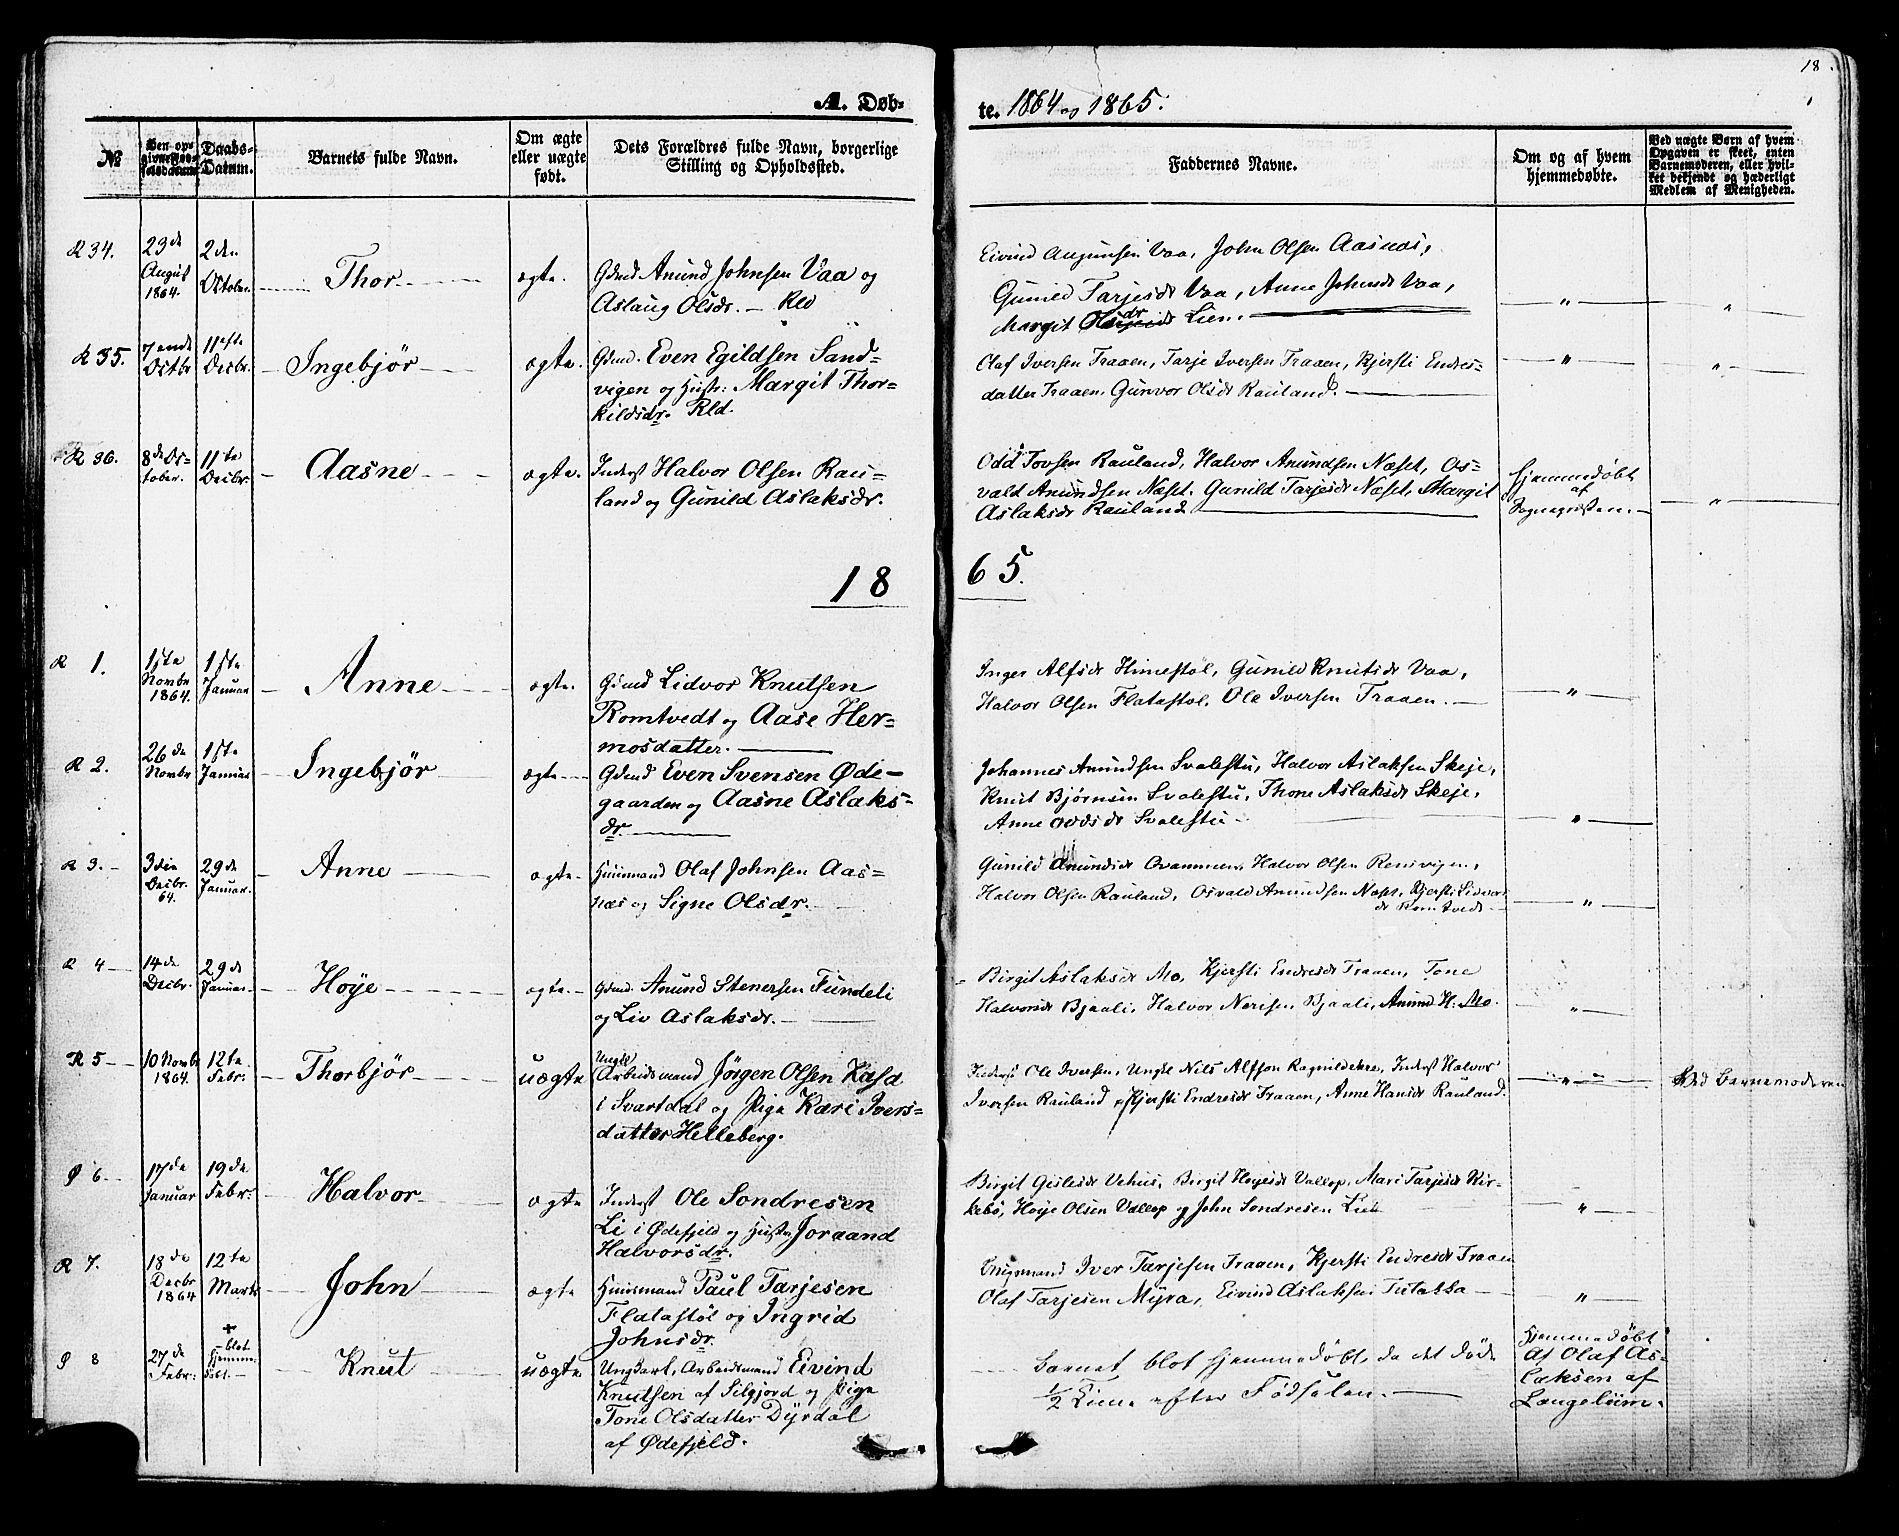 18
A. Døb-
te. 1864 og 1865.
№
Den op-
givne Fød-
selsdatum
Daabs-
Datum.
Barnets fulde Navn.
Om ægte
eller uægte
født.
Dets Forældres fulde Navn, borgerlige
Stilling og Opholdssted.
Faddernes Navne.
Om og af hvem
hjemmedøbte.
Ved uægte Børn af hvem
Opgaven er skeet, enten
Barnemoderen, eller hvil-
ket bekjendt og hæderligt
Medlem af Menigheden.
R 34.
23de
August
1864.
2den
Oktober.
Thor
ægte.
Gdmd. Anund Johnsen Vaa og
Aslaug Olsdr. — Rld
Eivind Augunsen Vaa, John Olsen Aasnæs,
Gunild Tarjesdr Vaa, Anne Johnsdr Vaa,
Margit Lien.
R 35.
7ende
Octbr
11efte
Decbr.
Ingebjør
ægte.
Gdmd. Even Egildsen Sand-
vigen og Hustr: Margit Thor-
kildsdr. Rld.
Olaf Iversen Traaen, Tarje Iversen Traaen, Kjersti Endres-
datter Traaen, Gunvor Olsdr Rauland.
R 36.
8de Oc-
tober.
11te
Decbr.
Aasne
ægte.
Inderst Halvor Olsen Rau-
land og Gunild Aslaksdr.
Odd Tovsen Rauland, Halvor Anundsen Næset, Os-
vald Anundsen Næset, Gunild Tarjesdr Næset, Margit
Aslaksdr Rauland
Hjemmedøbt
af
Sognepresten.
18 65.
R 1.
1ste
Novbr
1864.
1ste
Januar
Anne
ægte.
Gdmd Lidvor Knutsen
Romtvedt og Aase Her-
mosdatter.
Inger Alfsdr Himestøl, Gunild Knutsdr Vaa,
Halvor Olsen Flatastøl, Ole Iversen Traaen.
R 2.
26de
Novbr
1ste
Januar
Ingebjør
ægte
Gdmd Even Svensen Øde-
gaarden og Aasne Aslaks-
dr.
Johannes Anundsen Svalestu, Halvor Aslaksen Skeje,
Knut Bjørnsen Svalestu, Thone Aslaksdr Skeje,
Anne Oddsdr Svalestu
R 3.
3die
Decbr.
64.
29de
Januar.
Anne
ægte
Huusmand Olaf Johnsen Aas-
næs og Signe Olsdr.
Gunild Anundsdr Halvor Olsen Rensvigen,
Halvor Olsen Rauland, Osvald Anundsen Næset, Kjersti Lidvors
dr Romtvedt
R 4
14de
Decbr.
29de
Januar.
Høye
ægte.
Gdmd. Anund Stenersen Fundeli
og Liv Aslaksdr.
Birgit Aslaksdr Mo, Kjersti Endresdr Traaen, Tone
Halvorsdr Bjaali, Halvor Nerisen Bjaali, Anund H. Mo.
R 5
10 Novbr
1864.
12te
Febr:
Thorbjør
uægte
Ungkl
Arbeidsmand Jørgen Olsen Kasd
i Svartdal og Pige Kari Ivers-
datter Helleberg.
Inderst Ole Iversen, Ungkl Nils Alfson Ragnildekre, Inderst Halvor
Iversen Rauland, Kjersti Endresdr Traaen, Anne Hansdr Rauland.
Ved Barnemoderen
Ø 6
17de
Januar
19de
Febr:
Halvor
ægte
Inderst Ole Sondresen
Li i Ødefjeld og Hustr Joraand
Halvorsdr.
Birgit Gislesdr Vehus, Birgit Høyesdr Vallop, Mari Tarjesdr Kir-
kebø, Høye Olsen Vallop og John Sondresen Lie
R 7.
18de
Decbr
1864
12te
Marts
John
ægte
Huusmand Paul Tarjesen
Flatastøl og Ingrid
Johnsdr.
Ungmand Iver Tarjesen Traaen, Kjersti Endresdr Traaen
Olaf Tarjesen Myra, Eivind Aslaksen
Ø 8
27de
Febr:
+
blot
hjemme-
døbt.
Knut
uægte
Ungkarl, Arbeidsmand Eivind
Knutsen af Silgjord og Pige
Tone Olsdatter Dyrdal
af Ødefjeld.
Barnet blot hjemmedøbt, da det døde
1/2 Time efter Fødselen.
Hjemmedøbt
Af Olaf As-
laksen af